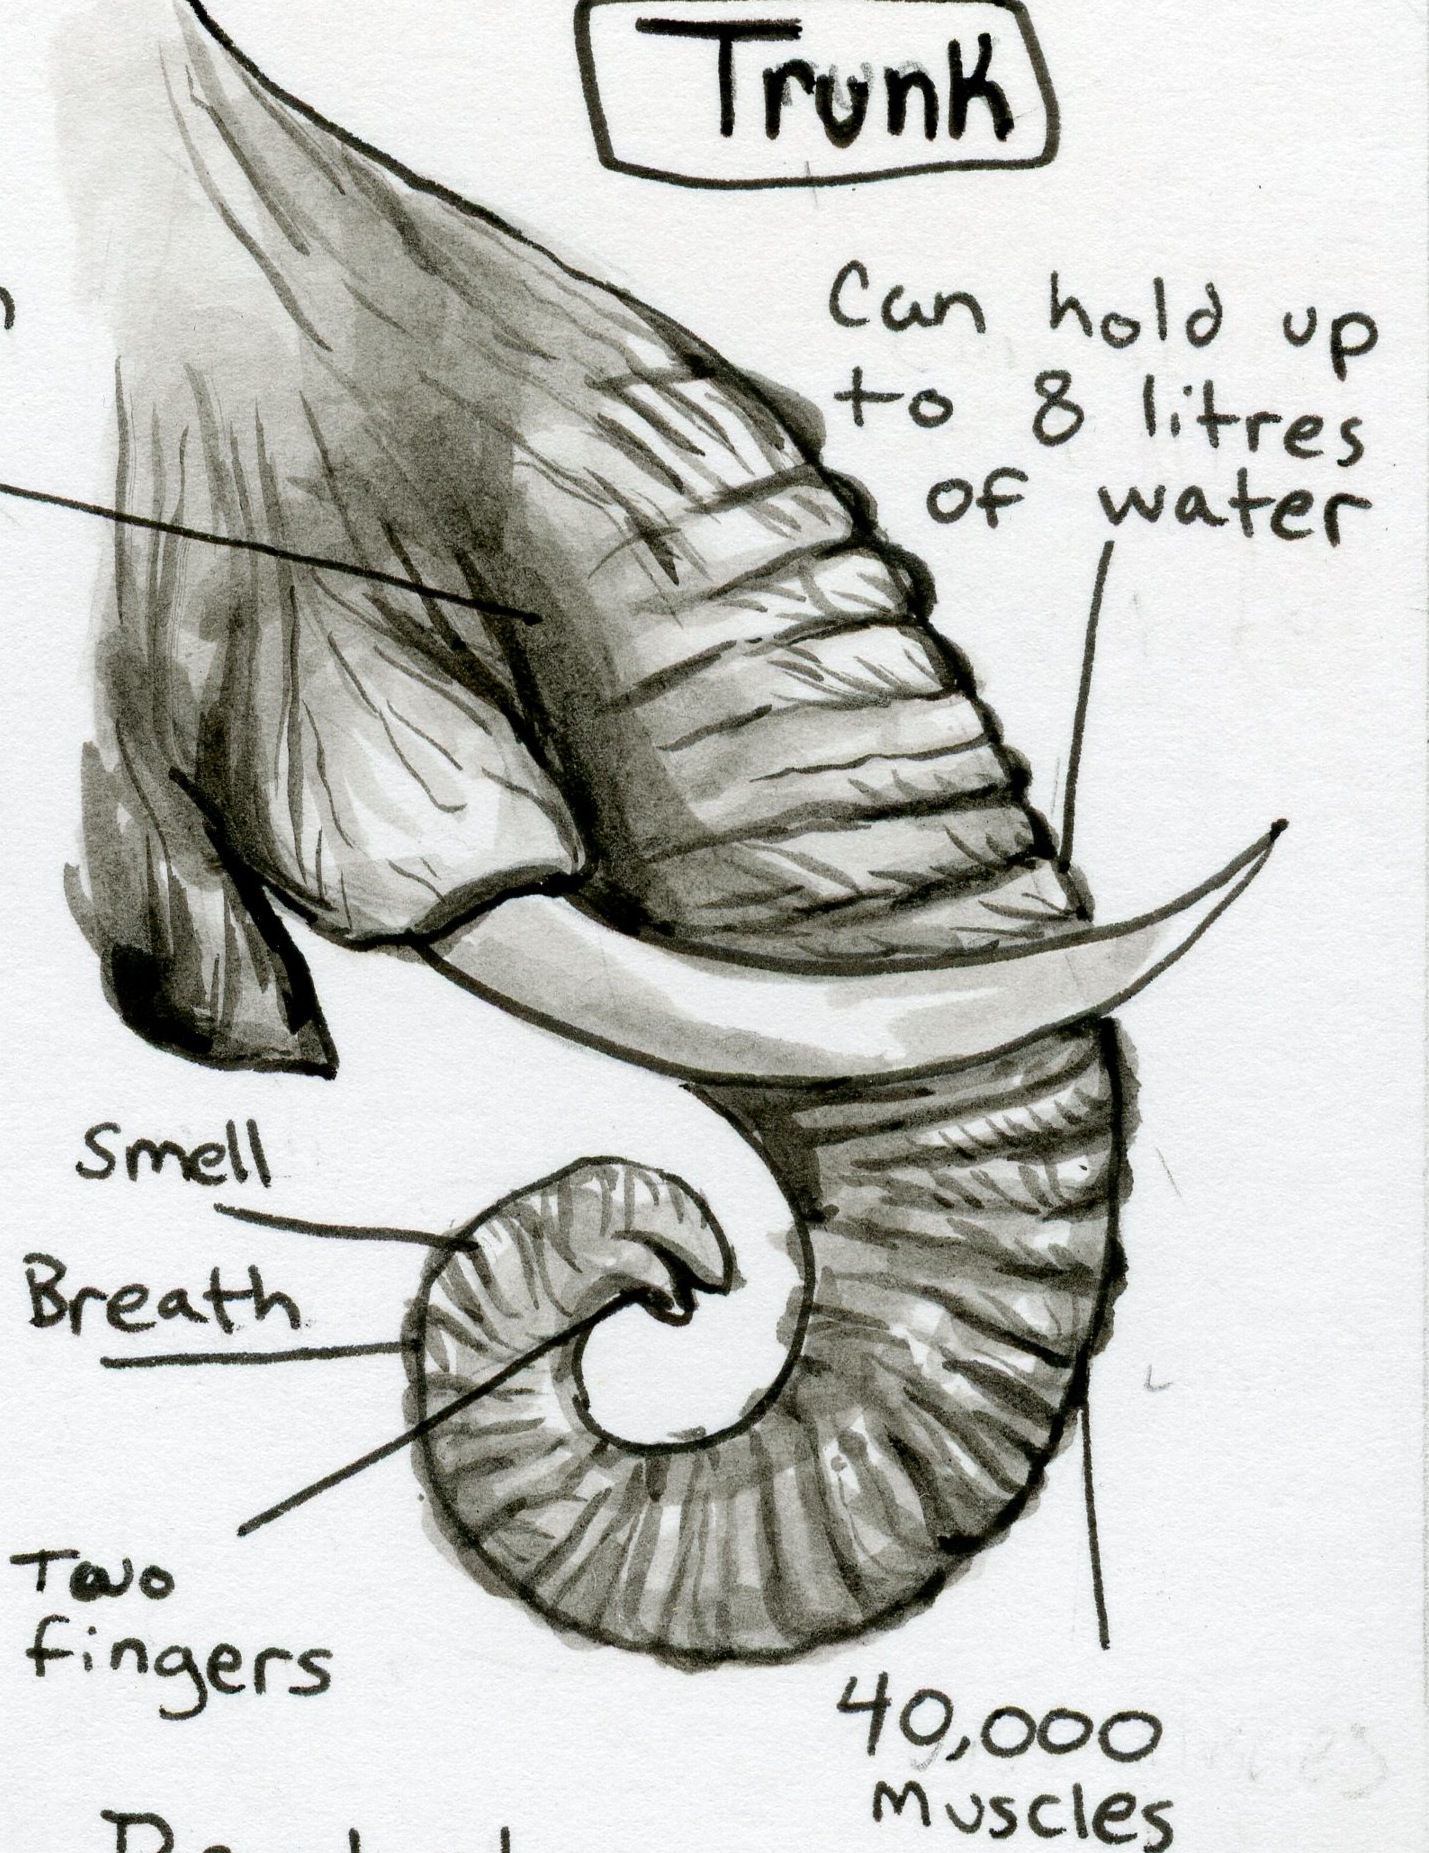 Trunk
Can hold up
to 8 litres
of water
Smell
Breath
Two
fingers
40,000
Muscles